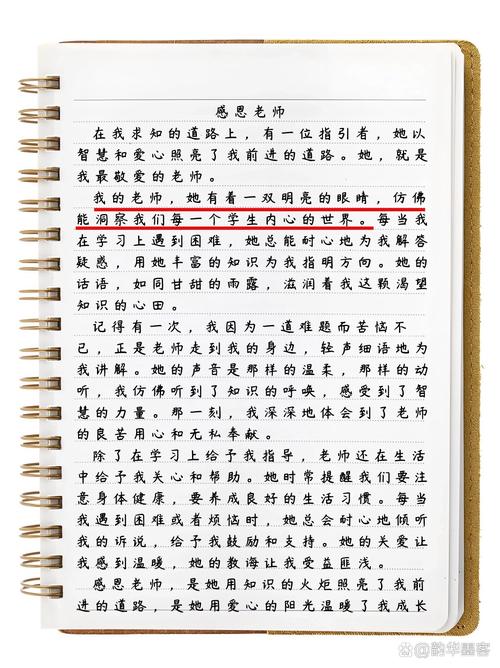 感恩老师
在我求知的道路上，有一位指引者，她以
智慧和爱心照亮了我前进的道路。她，就是
我最敬爱的老师。
我的老师，她有着一双明亮的眼睛，仿佛
能洞察我们每一个学生内心的世界。每当我
在学习上遇到困难，她总能耐心地为我解答
疑惑，用她丰富的知识为我指明方向。她的
话语，如同甘甜的雨露，滋润着我这颗渴望
知识的心田。
记得有一次，我因为一道难题而苦恼不
已，正是老师走到我的身边，轻声细语地为
我讲解。她的声音是那样的温柔，那样的动
听，我仿佛听到了知识的呼唤，感受到了智
慧的力量。那一刻，我深深地体会到了老师
的良苦用心和无私奉献。
除了在学习上给予我指导，老师还在生活
中给予我关心和帮助。她时常提醒我们要注
意身体健康，要养成良好的生活习惯。每当
我遇到困难或者烦恼时，她总会耐心地倾听
我的诉说，给予我鼓励和支持。她的关爱让
我感到温暖，她的教诲让我受益匪浅。
感恩老师，是她用知识的火炬照亮了我前
进的道路，是她用爱心的阳光温暖了我成长
@韵华墨客